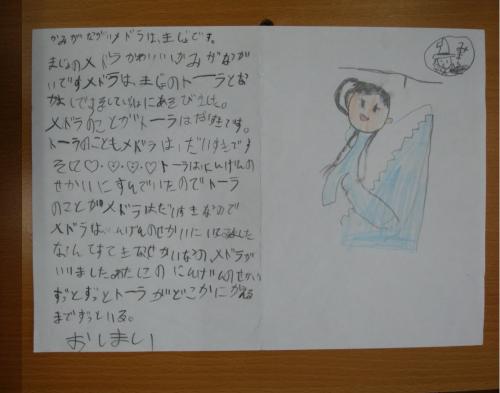 かみがながいメドラは、まじょです。
まじょのメドラかわいいかみがなが
いですメドラは、まじょのトーラとな
かよしでましていっしょにあそびました。
メドラのことがトーラはだいすきです。
トーラのこともメドラは、だいすきです
そして♡・♡・♡・♡トーラはにんげんの
せかいにすんでいたのでトーラ
のことがメドラはだいすきなので
メドラは、にんげんのせかいに
なんてすてきなせかいなの、メドラが
いいましたわたしこのにんげんのせかい
ずっとずっとトーラがどこかにかえる
までずっといる。
おしまい